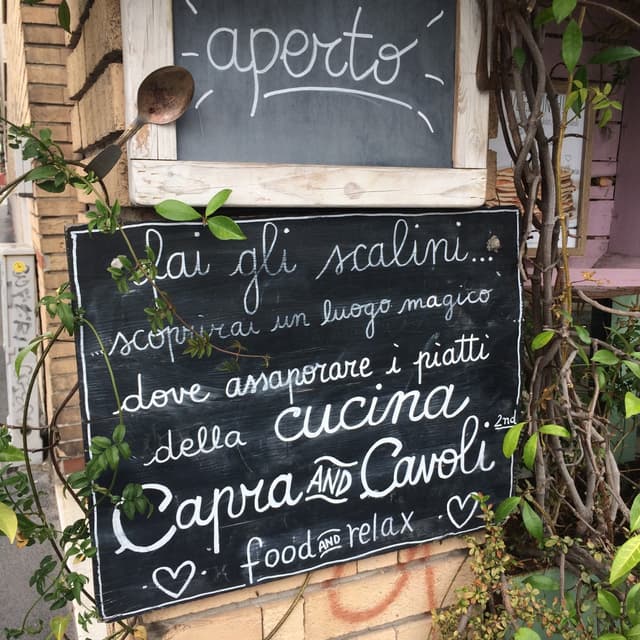 aperto
fai gli scalini...
...scoprirai un luogo magico
dove assaporare i piatti
della cucina
Capra AND Cavoli 2nd
food AND relax